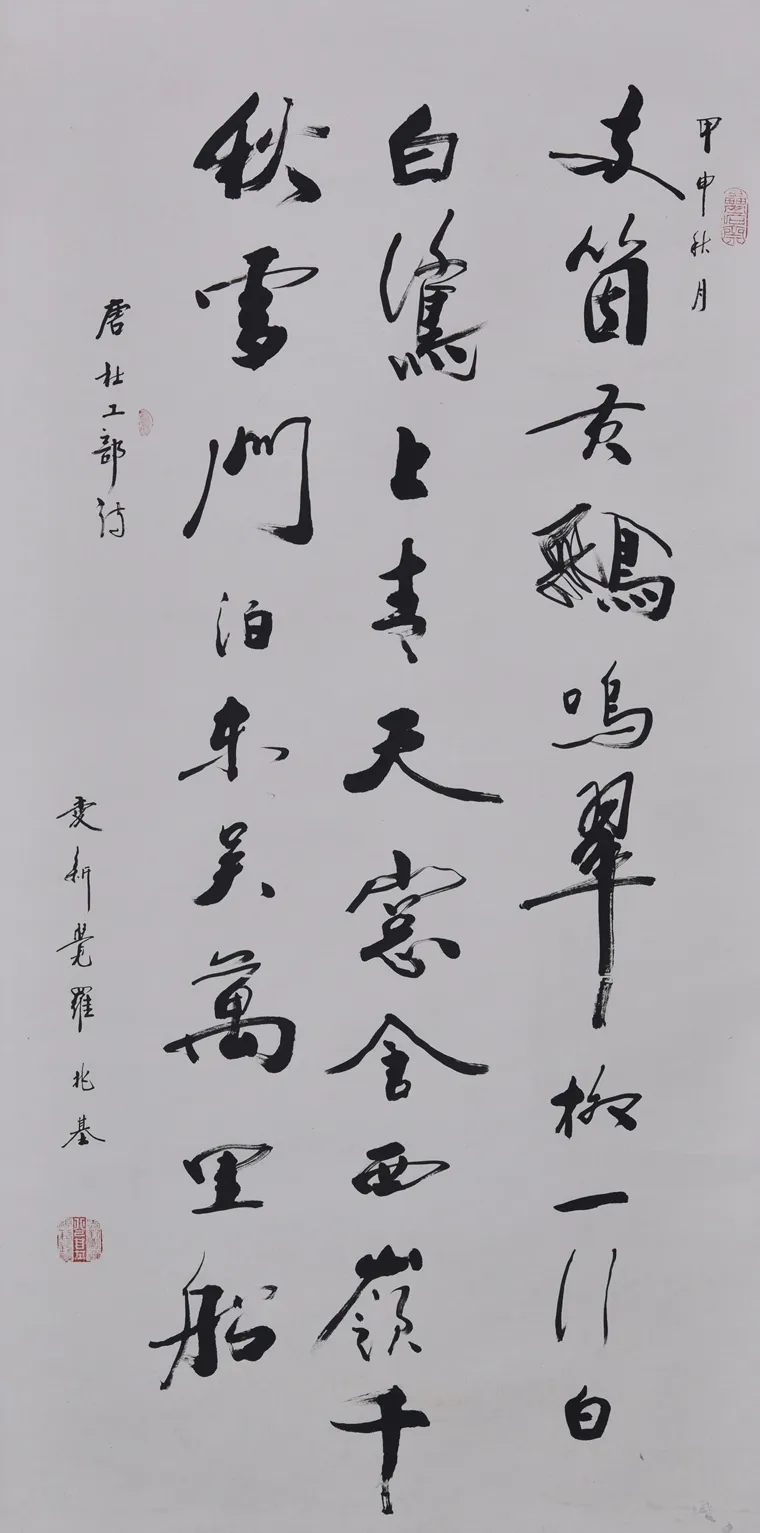 甲申秋月
兩箇黄鸝鳴翠柳一行白
白鷺上青天窓含西嶺千
秋雪門泊東吴萬里船
唐杜工部詩
愛新覺羅兆基